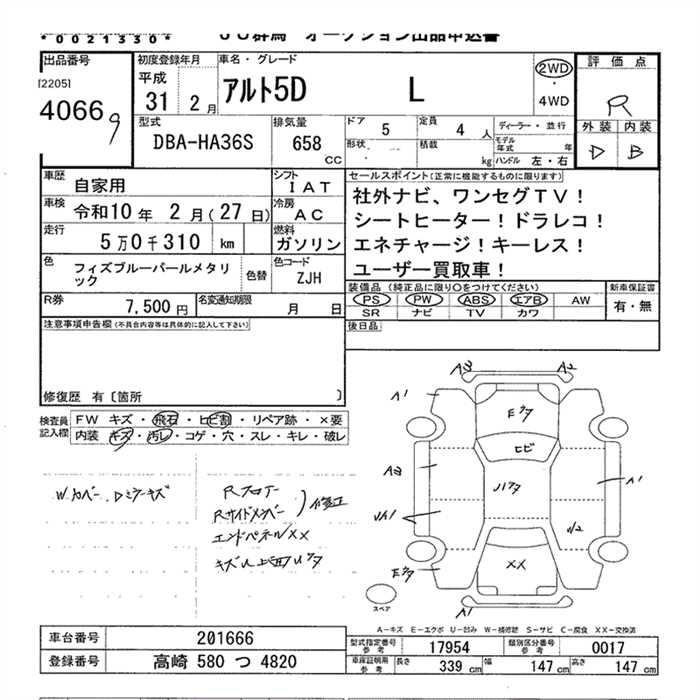 *0021330*
ＪＵ群馬 オークション出品申込書
出品番号
[2205]
4066
9
初度登録年月
平成
31 2 月
車名・グレード
アルト5D L
2WD
・
4WD
評価点
R
外装 内装
D B
型式
DBA-HA36S
排気量
658
CC
ドア 5
定員 4 人
形状
積載 kg
ディーラー・並行
モデル
年式 年
ハンドル 左・右
車歴 自家用
シフト ＩＡＴ
車検 令和10 年 2 月(27 日)
冷房 ＡＣ
走行 5 万 0 千 310 km
燃料 ガソリン
色 フィズブルーパールメタリ
ック
色替
色コード ZJH
R券 7,500 円
名変通知期限 月 日
セールスポイント(正常に機能するものに限ります)
社外ナビ、ワンセグＴＶ！
シートヒーター！ドラレコ！
エネチャージ！キーレス！
ユーザー買取車！
装備品 (純正品に限り○をつけてください)
PS PW ABS エアB AW
SR ナビ TV カワ
新車保証書
有・無
後日品
注意事項申告欄 (不具合内容等は具体的に記入して下さい)
修復歴 有〔箇所 〕
検査員
記入欄
FW キズ・飛石・ヒビ割・リペア跡・×要
内装 キズ・汚レ・コゲ・穴・スレ・キレ・破レ
W.カバー、Dミラーキズ
Rフロアー
Rサイドメンバー ) 修正
エンドパネルXX
A3 A2
A1
Eクタ
ヒビ
A3
ハクタ
A1
XX
Eクタ
A1
スペア
A－キズ E－エクボ U－凹み W－補修跡 S－サビ C－腐食 XX－交換済
車台番号 201666
登録番号 高崎 580 つ 4820
型式指定番号
参考
17954
類別区分番号
参考
0017
車庫証明用
参考
長さ 339 cm
幅 147 cm
高さ 147 cm